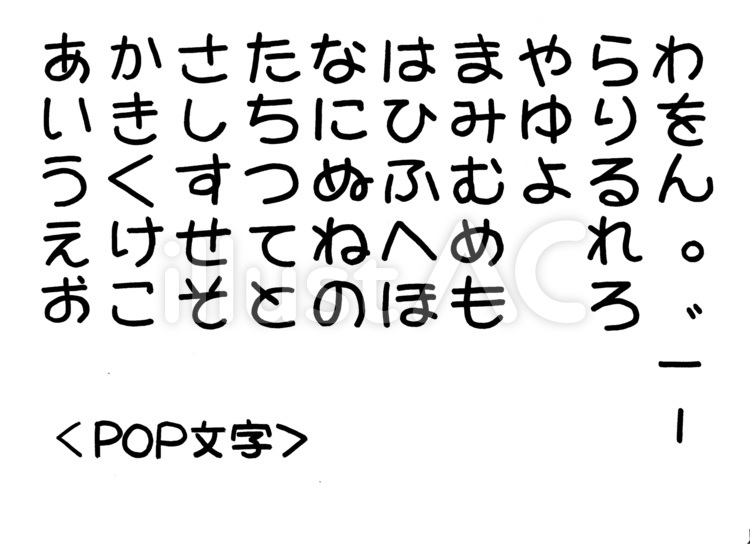 あかさたなはまやらわ
いきしちにひみゆりを
うくすつぬふむよるん
えけせてねへめ れ。
おこそとのほも ろ゛
ー
ー
<POP文字>
illustAC